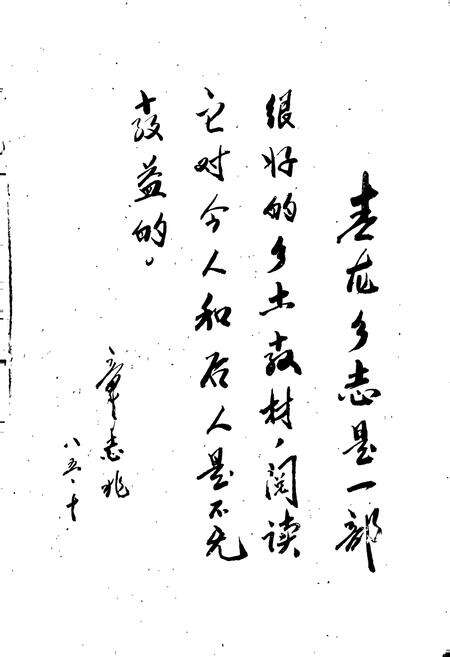 青龙乡志是一部
很好的乡土教材，阅读
它对今人和后人是不无
教益的。
章志兆
八五、十